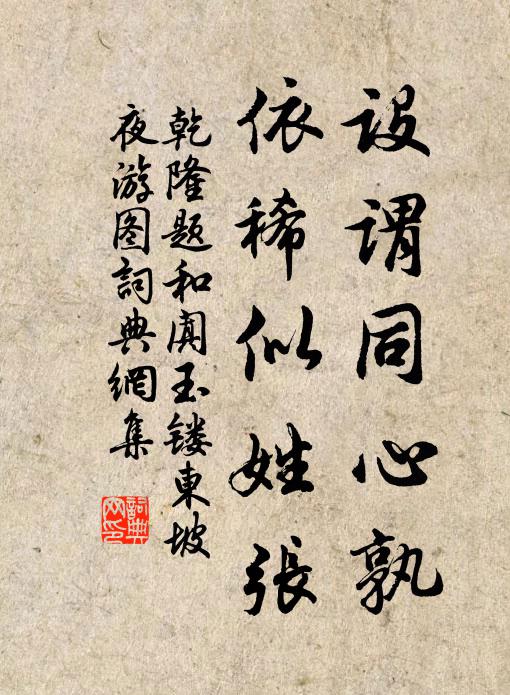 設謂同心孰
依稀似姓張
乾隆题和阗玉镂東坡
夜游图詞典網集
詞典
网印